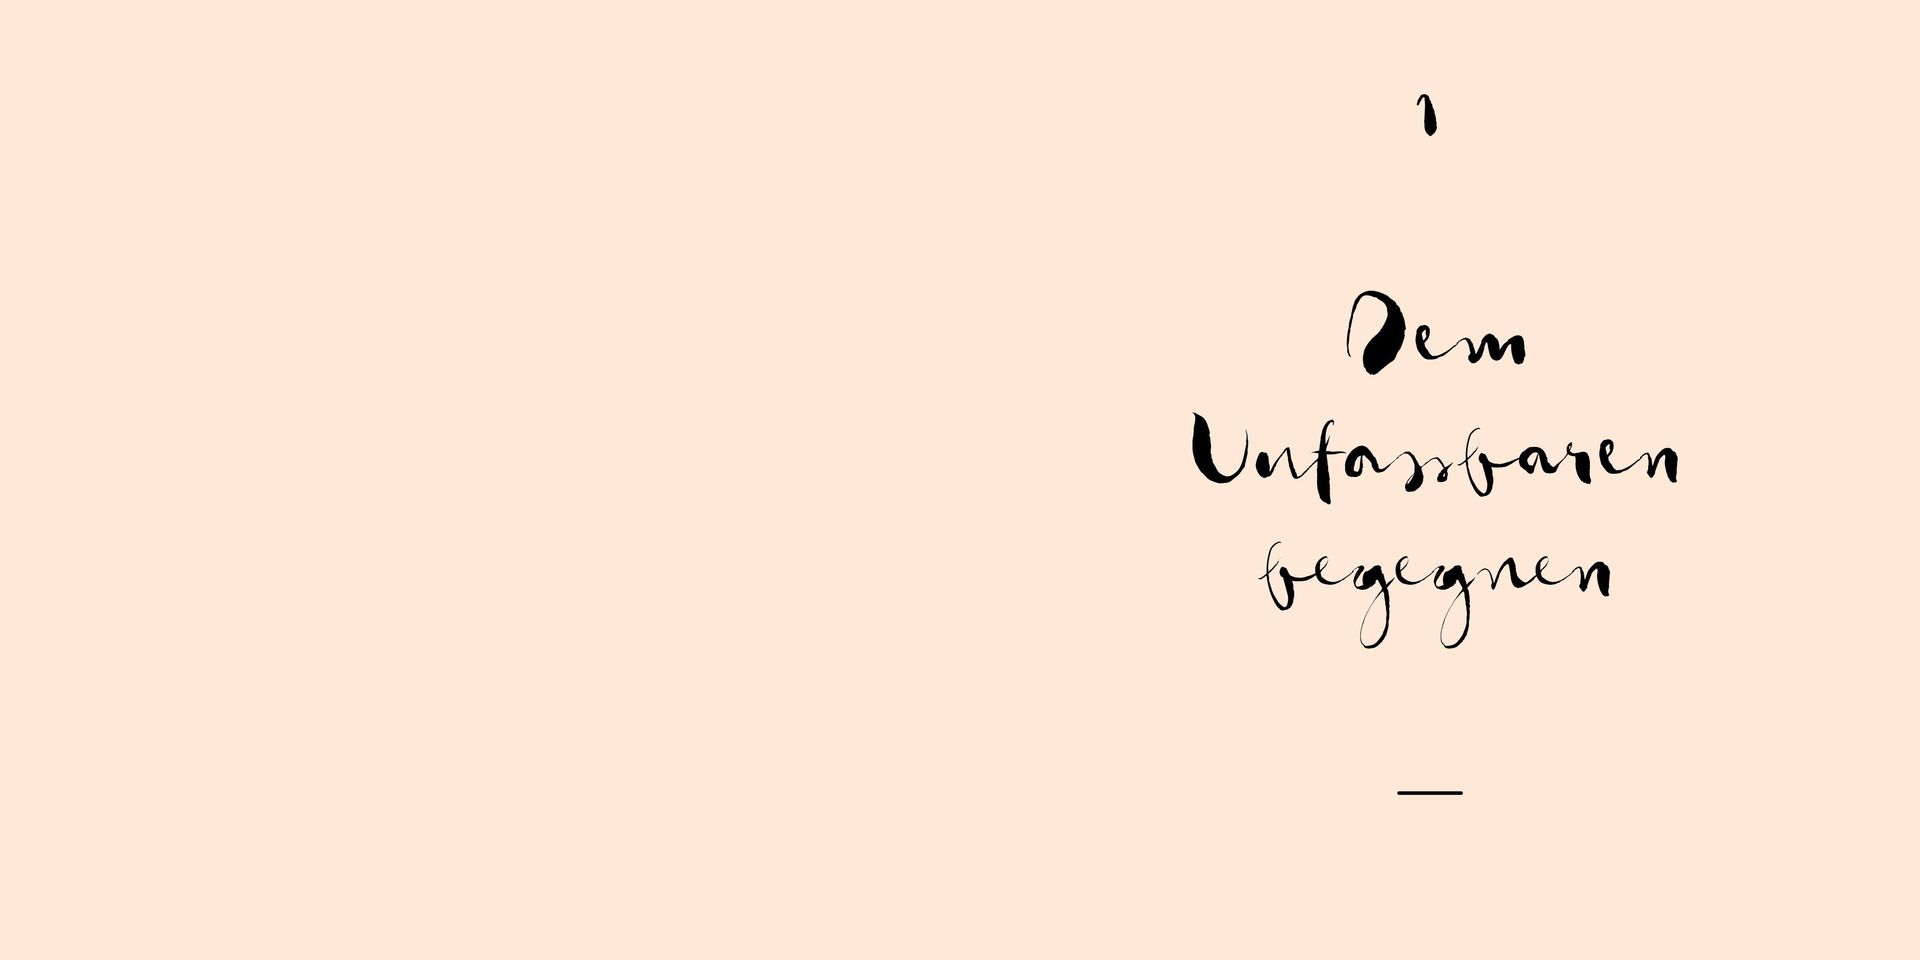 1
Dem
Unfassbaren
begegnen